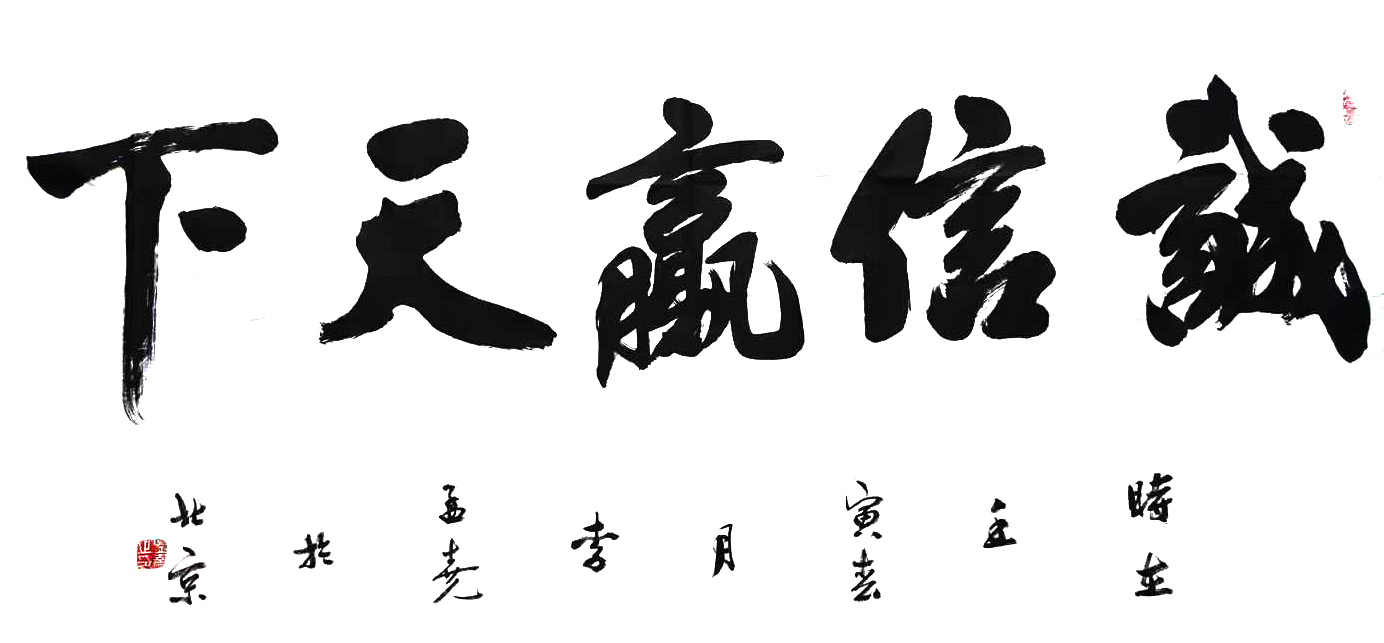 誠信贏天下
時在壬寅春月李孟堯於北京